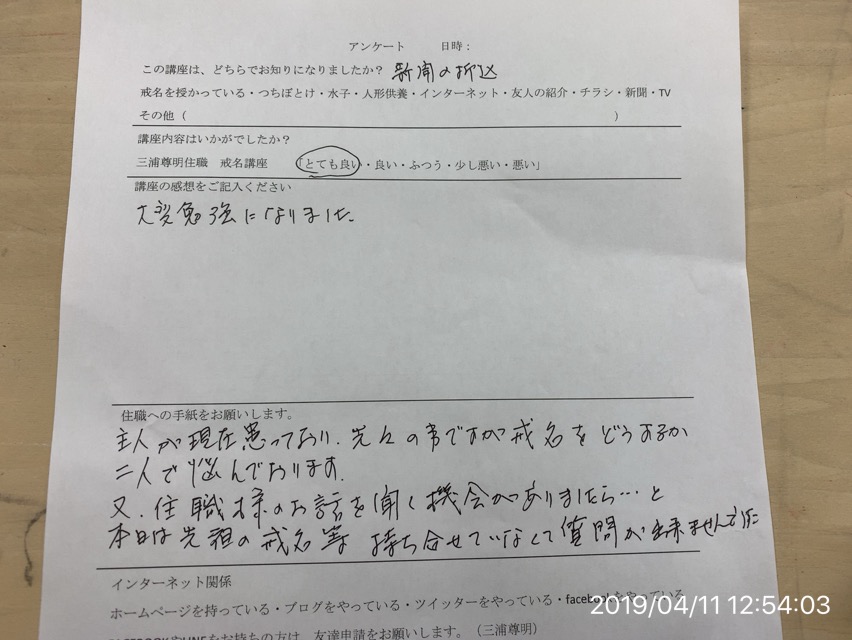 アンケート　　日時：
この講座は、どちらでお知りになりましたか？ 新聞の折込
戒名を授かっている・つちぼとけ・水子・人形供養・インターネット・友人の紹介・チラシ・新聞・TV
その他（　　　　　　　　　　）
講座内容はいかがでしたか？
三浦尊明住職　戒名講座　「とても良い・良い・ふつう・少し悪い・悪い」
講座の感想をご記入ください
大変勉強になりました
住職への手紙をお願いします。
主人が現在患っており、先々の事ですが戒名をどうするか
二人で悩んでおります。
又、住職様のお話を聞く機会がありましたら…と
本日は先祖の戒名等 持ち合せていなくて質問が出来ませんでした
インターネット関係
ホームページを持っている・ブログをやっている・ツイッターをやっている・facebookをやっている
FACEBOOKやLINEをお持ちの方は、友達申請をお願いします。（三浦尊明）
2019/04/11 12:54:03